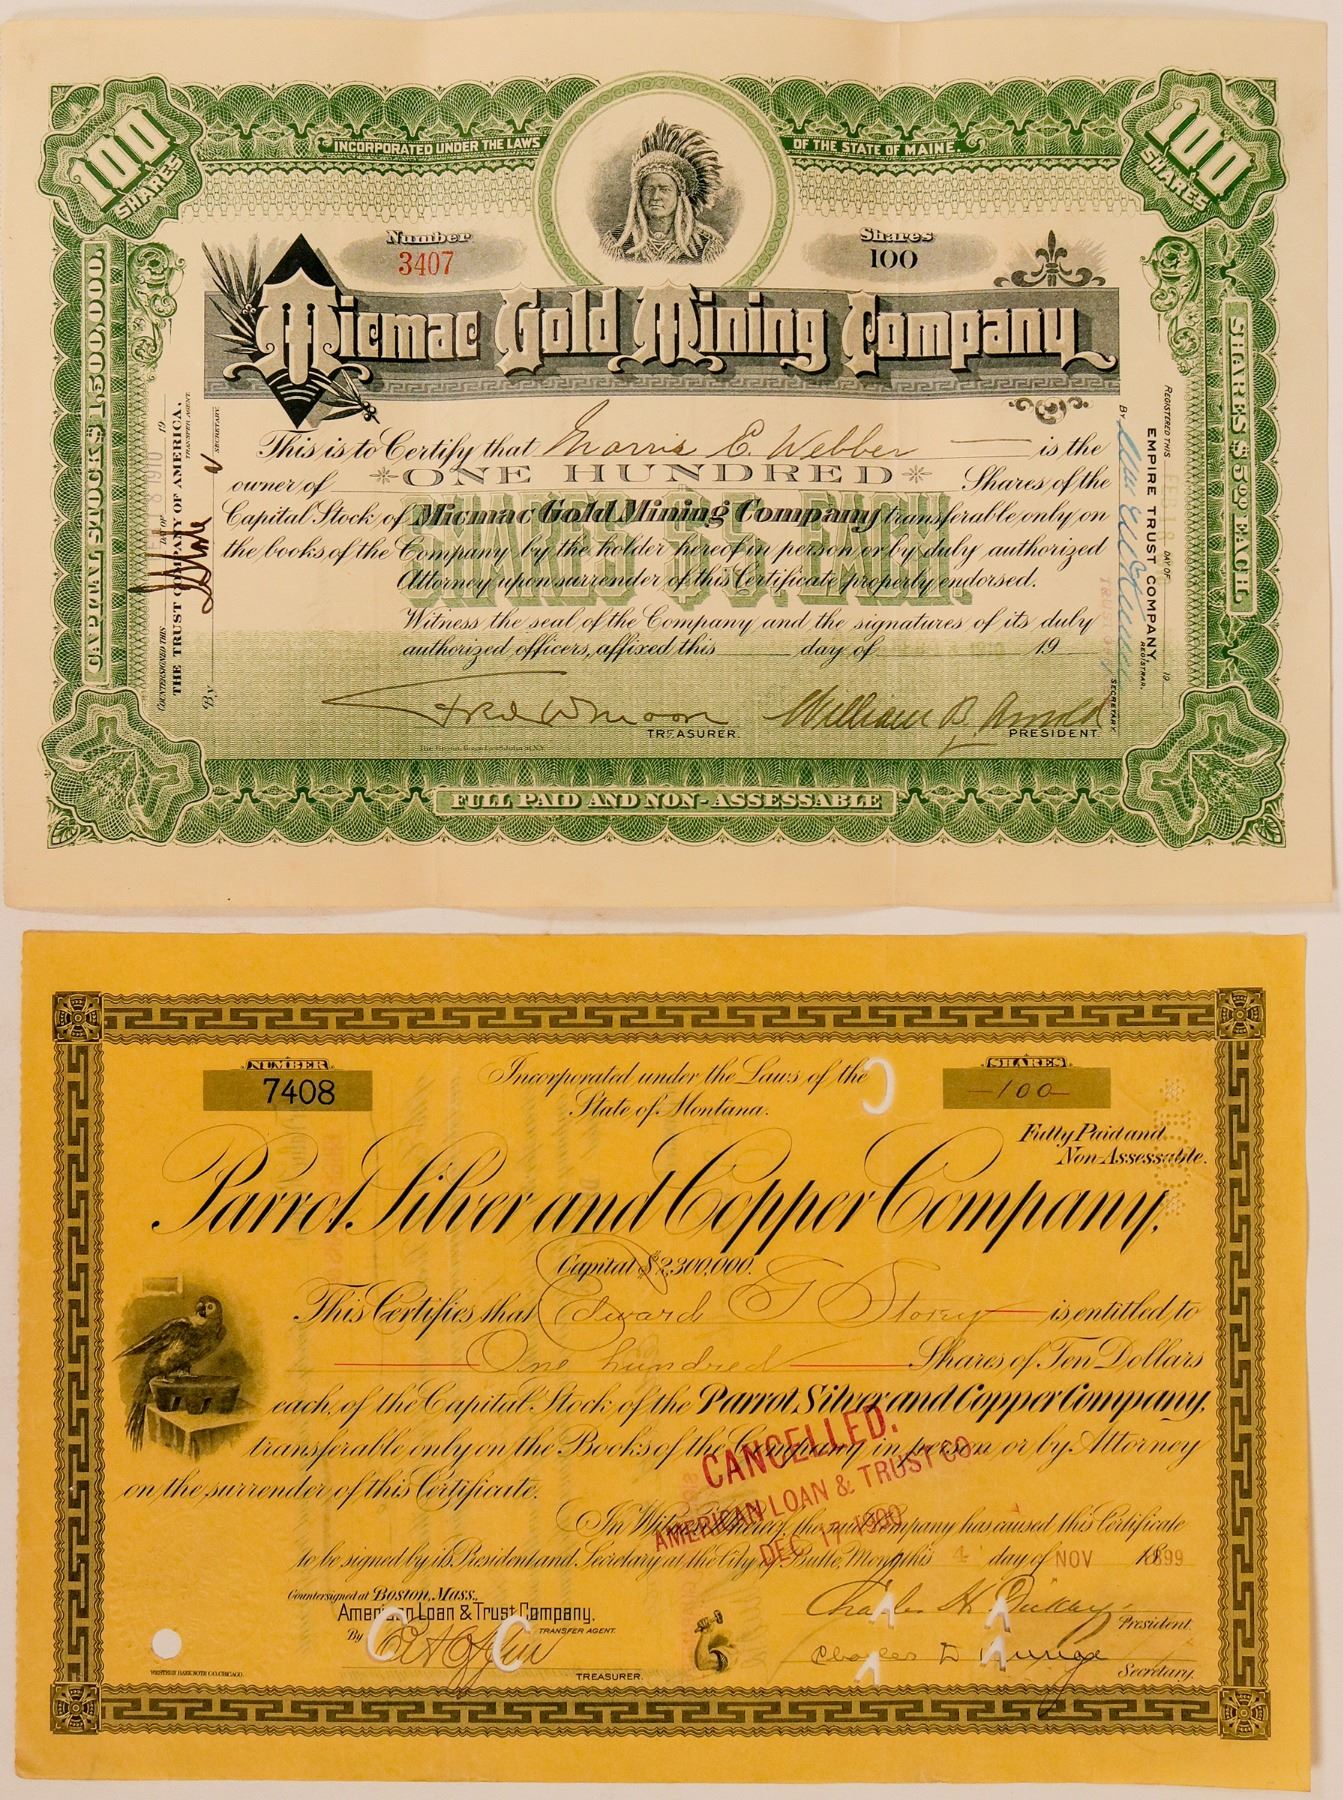 INCORPORATED UNDER THE LAWS OF THE STATE OF MAINE.
100 SHARES
100 SHARES
Number 3407
Shares 100
Micmac Gold Mining Company
This is to Certify that Morris E. Webber is the
owner of ONE HUNDRED Shares of the
Capital Stock of Micmac Gold Mining Company transferable only on
the books of the Company by the holder hereof in person or by duly authorized
Attorney upon surrender of this Certificate properly endorsed.
SHARES $5. EACH.
Witness the seal of the Company and the signatures of its duly
authorized officers, affixed this day of 19
Fred W Moore
TREASURER.
William B. Arnold
PRESIDENT.
FULL PAID AND NON-ASSESSABLE
CAPITAL STOCK $1,500,000.
SHARES $5.00 EACH.
COUNTERSIGNED THIS DAY OF 19
8 1910
THE TRUST COMPANY OF AMERICA,
TRANSFER AGENT.
By
SECRETARY.
REGISTERED THIS DAY OF 19
EMPIRE TRUST COMPANY,
REGISTRAR.
By
SECRETARY.
NUMBER
7408
SHARES
100
Incorporated under the Laws of the
State of Montana.
Fully Paid and
Non-Assessable.
Parrot Silver and Copper Company,
Capital $2,300,000.
This Certifies that Edward G Storey is entitled to
One hundred Shares of Ten Dollars
each, of the Capital Stock of the Parrot Silver and Copper Company,
transferable only on the Books of the Company in person or by Attorney
on the surrender of this Certificate.
CANCELLED.
AMERICAN LOAN & TRUST CO.
DEC 17 1900
In Witness Whereof, the said Company has caused this Certificate
to be signed by its President and Secretary at the City of Butte, Mont, this 4 day of NOV 1899
Countersigned at Boston, Mass.,
American Loan & Trust Company.
TRANSFER AGENT.
By
TREASURER.
President
Secretary.
WESTERN BANK NOTE CO. CHICAGO.